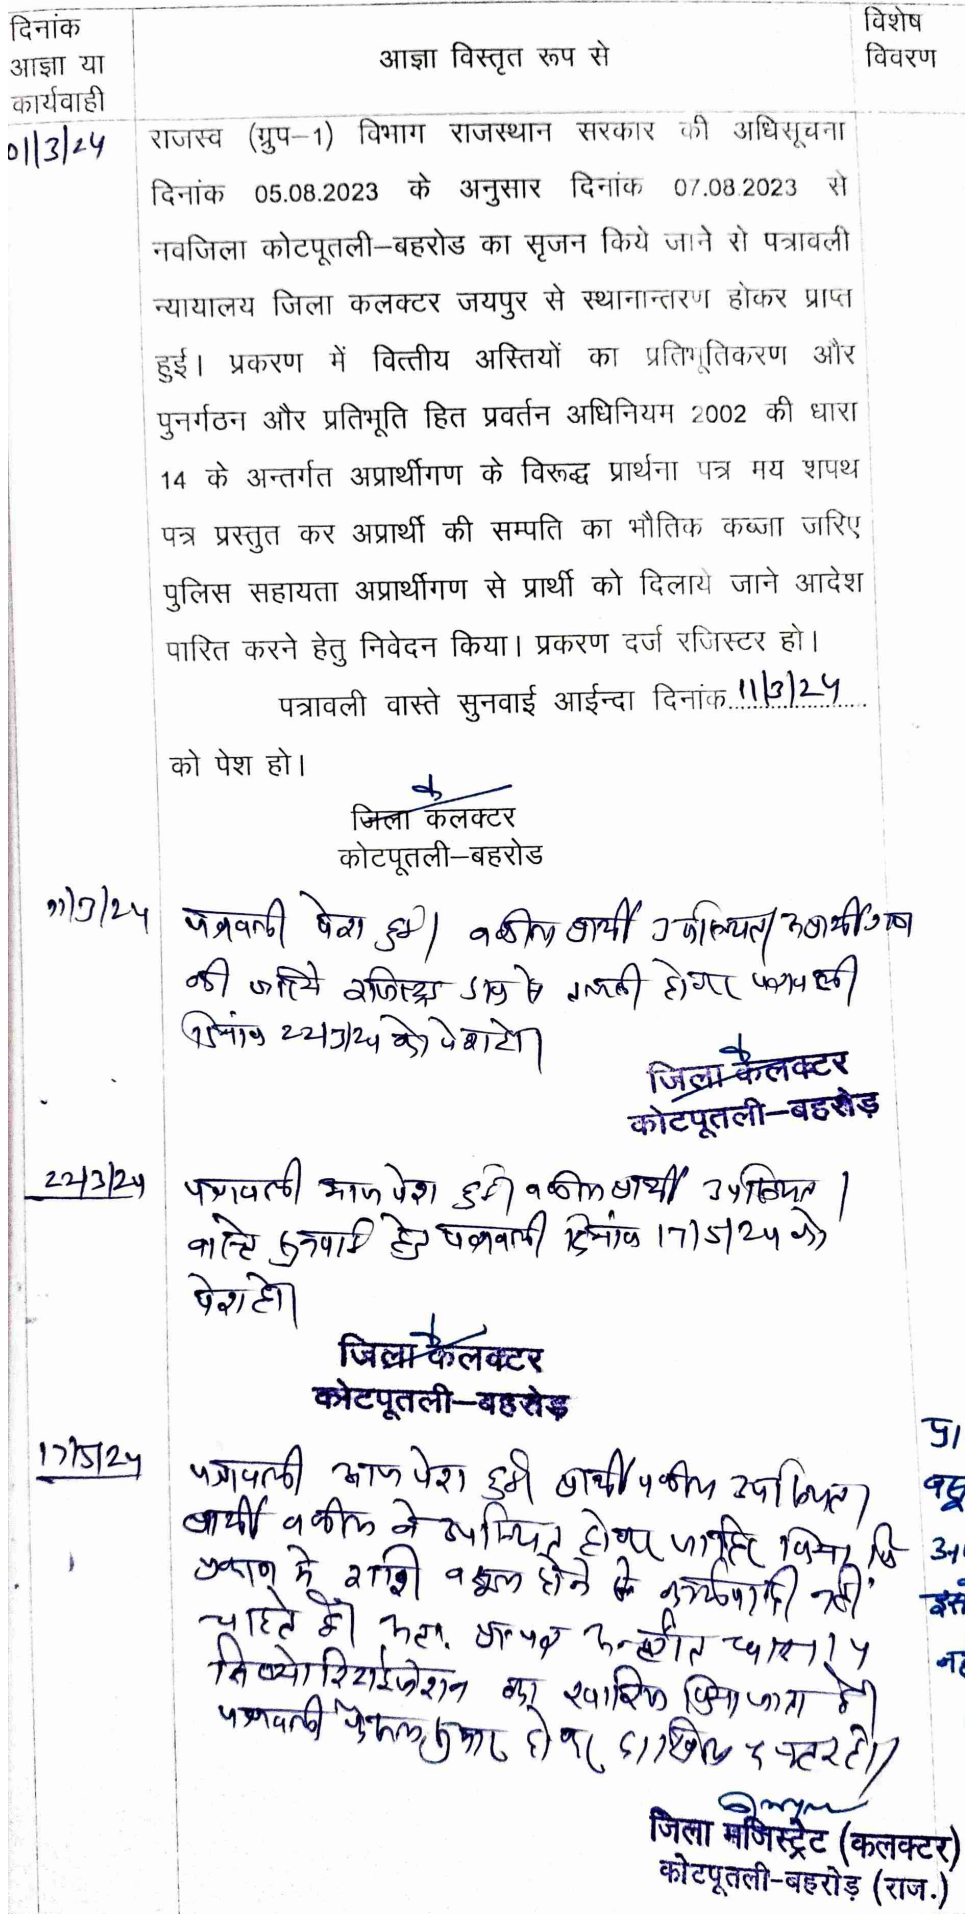 दिनांक
आज्ञा या
कार्यवाही
आज्ञा विस्तृत रूप से
विशेष
विवरण
01/3/24
राजस्व (ग्रुप–1) विभाग राजस्थान सरकार की अधिसूचना
दिनांक 05.08.2023 के अनुसार दिनांक 07.08.2023 से
नवजिला कोटपूतली–बहरोड का सृजन किये जाने से पत्रावली
न्यायालय जिला कलक्टर जयपुर से स्थानान्तरण होकर प्राप्त
हुई। प्रकरण में वित्तीय अस्तियों का प्रतिभूतिकरण और
पुनर्गठन और प्रतिभूति हित प्रवर्तन अधिनियम 2002 की धारा
14 के अन्तर्गत अप्रार्थीगण के विरूद्ध प्रार्थना पत्र मय शपथ
पत्र प्रस्तुत कर अप्रार्थी की सम्पति का भौतिक कब्जा जरिए
पुलिस सहायता अप्रार्थीगण से प्रार्थी को दिलाये जाने आदेश
पारित करने हेतु निवेदन किया। प्रकरण दर्ज रजिस्टर हो।
पत्रावली वास्ते सुनवाई आईन्दा दिनांक 11/3/24
को पेश हो।
जिला कलक्टर
कोटपूतली–बहरोड
11/3/24
पत्रावली पेश हुई। वकील प्रार्थी उपस्थित। अप्रार्थीगण
को जरिये रजिस्टर्ड डाक से तलबी होकर पत्रावली
दिनांक 22/3/24 को पेश हो।
जिला कलक्टर
कोटपूतली–बहरोड़
22/3/24
पत्रावली आज पेश हुई। वकील प्रार्थी उपस्थित।
वास्ते सुनवाई हेतु पत्रावली दिनांक 17/5/24 को
पेश हो।
जिला कलक्टर
कोटपूतली–बहरोड़
17/5/24
पत्रावली आज पेश हुई प्रार्थी वकील उपस्थित।
प्रार्थी वकील ने उपस्थित होकर जाहिर किया कि
प्रकरण में राशि वसूल होने से कार्यवाही नहीं
चाहते हैं। अतः प्रा० पत्र अन्तर्गत धारा 14
सिक्योरिटाईजेशन का खारिज किया जाता है।
पत्रावली फैसल शुमार होकर दाखिल दफ्तर हो।
जिला मजिस्ट्रेट (कलक्टर)
कोटपूतली-बहरोड़ (राज.)